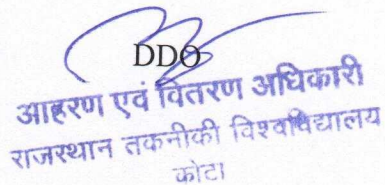 DDO
आहरण एवं वितरण अधिकारी
राजस्थान तकनीकी विश्वविद्यालय
कोटा